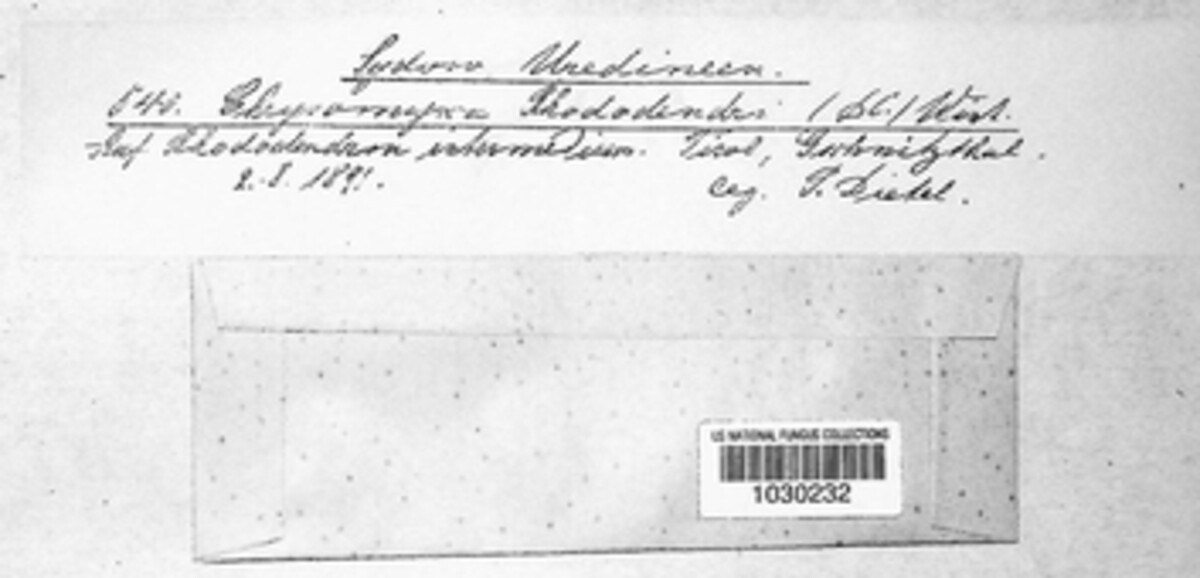 Sydow, Uredineen.
540. Chrysomyxa Rhododendri (DC.) Wint.
Auf Rhododendron intermedium. Tirol, Gschnitzthal.
2.8. 1891. leg. P. Dietel.
US NATIONAL FUNGUS COLLECTIONS
1030232